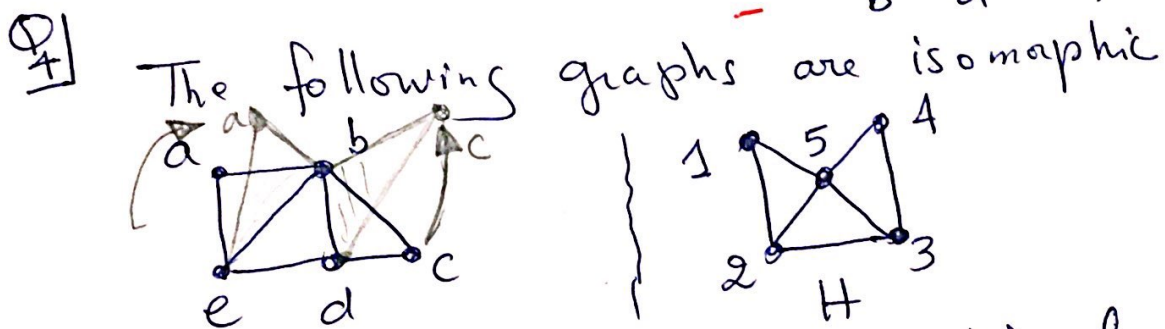 Q4
The following graphs are isomorphic
a b c 5 4
a 1
e d c 2 3
H